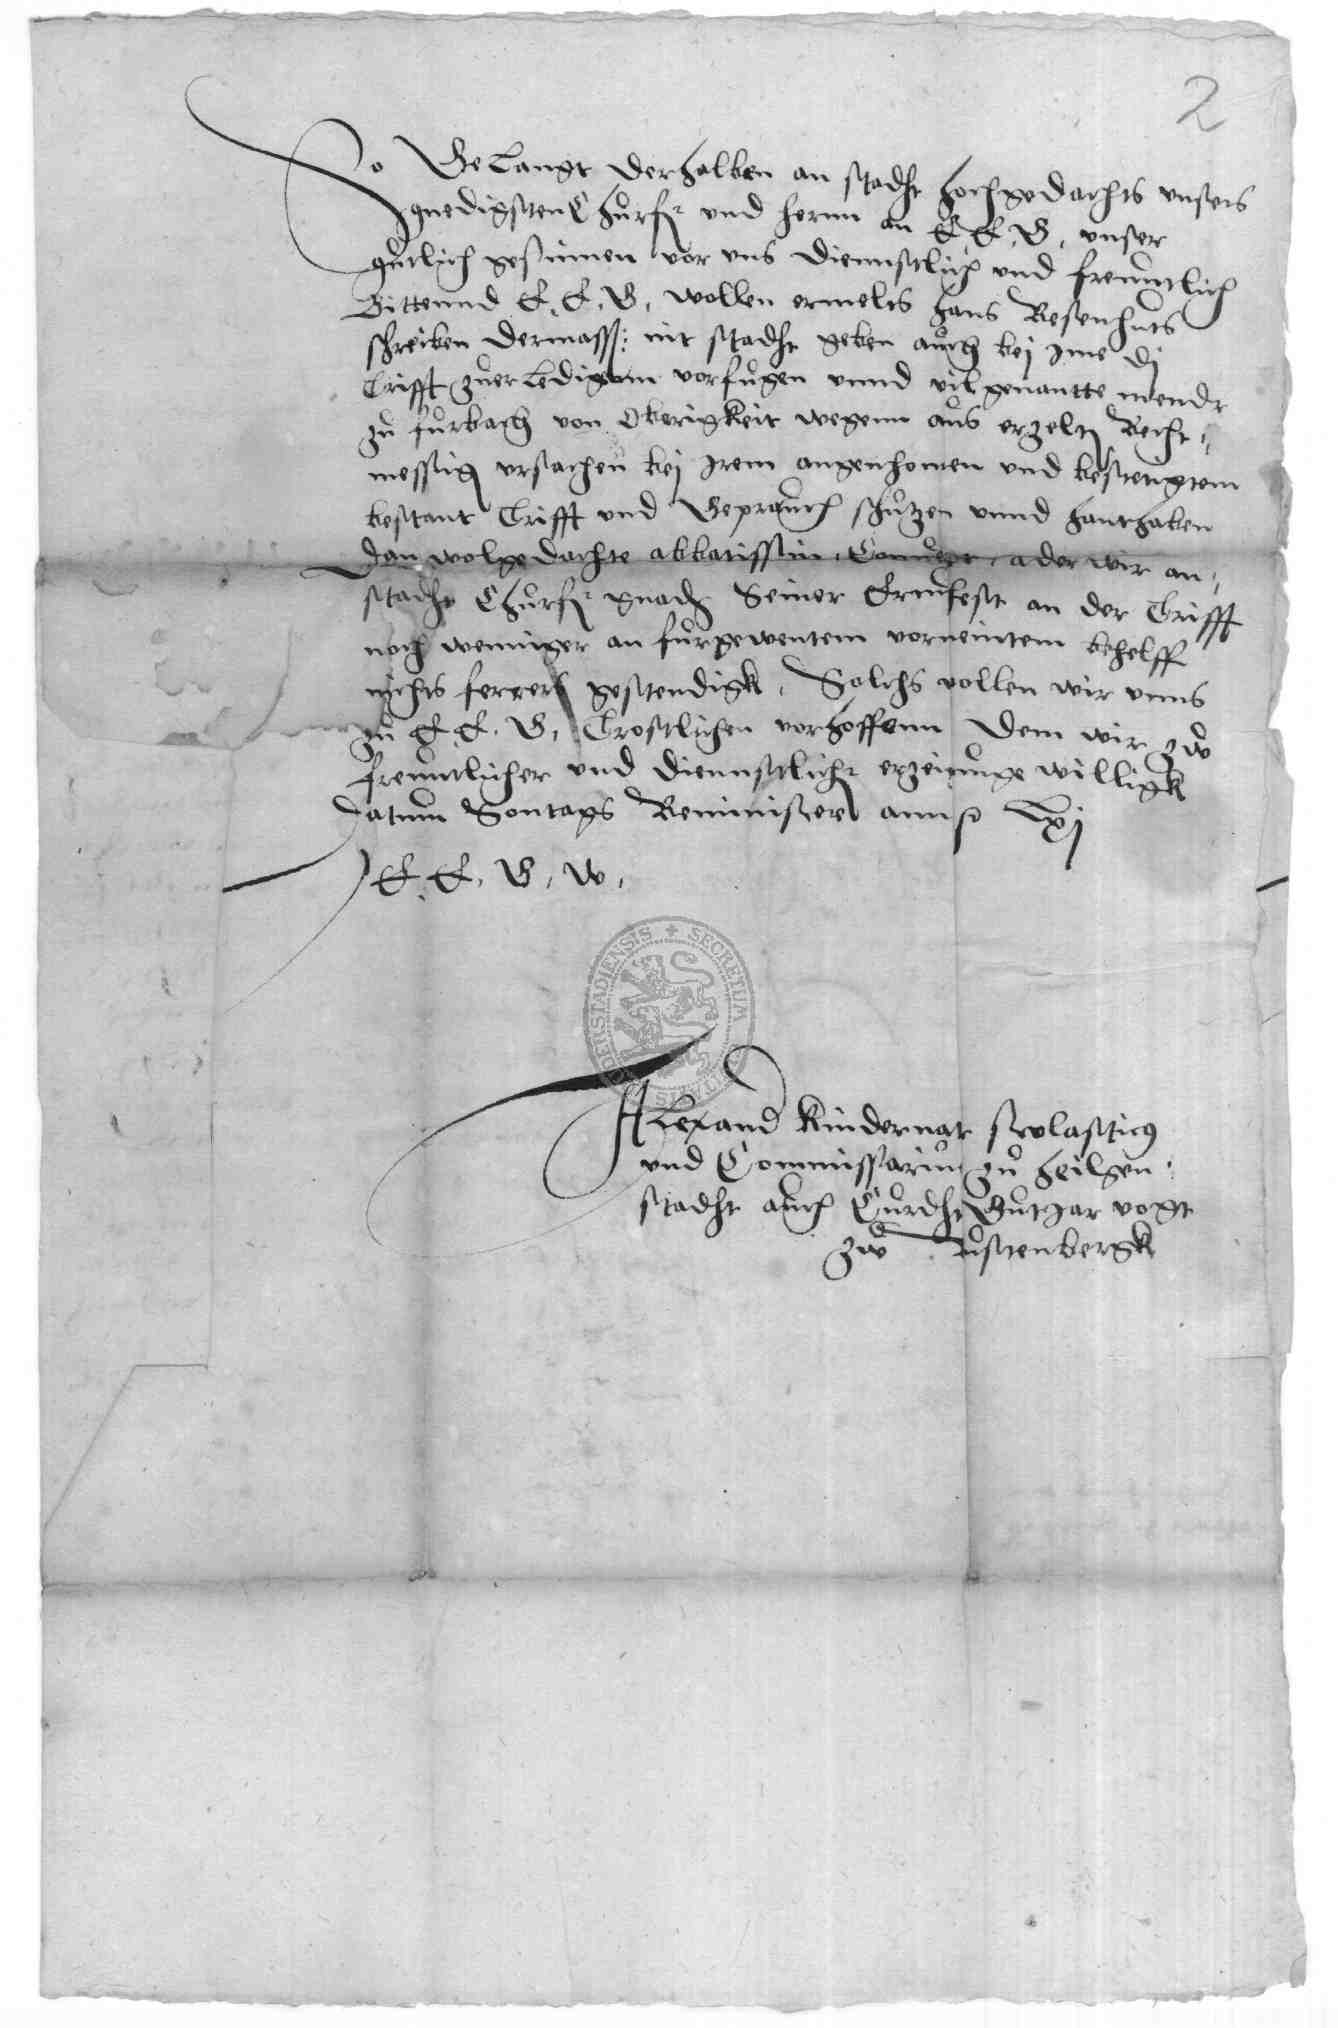 2
So Gelangt derhalben an stadht hochgedachts unsers
gnedigsten Churf. und hernn an E. E. G. unser
gutlich gesinnen vor uns diennstlich und freuntlich
Bittennd E. E. G. wollen ermelts Hans Resenhuts
schreiben dermass: nit stadht geben auch bei ime di
Trifft zuerledigenn vorfugen unnd vilgenantte mendr
zu furbach von Oberigkeit wegenn aus erzeltn Recht
messign ursachen bei irem angenhomen und bestetigtem
bestant Trifft und Geprauch schutzen unnd hanthaben
Dan wolgedachte abbatissin, Convent, ader wir an
stadht Churf. gnadn Seiner Ernvest an der Trifft
noch wenniger an furgewentem vormeintem behelff
nichts ferrers gestendigk, Solchs wollen wir unns
zu E. E. G. Trostlichen vorhoffenn Dem wir zw
freuntlicher und diennstlichr erzeigunge willigk
Datum Sontags Reminiscere anno Lxj
E. E. G. W.
SECRETUM
DERSTADIENSIS
Alexand Kindernat scolasticus
und Commissarius zu Heilgen
stadht auch Curdht Gutjar vogt
zw Rustenbergk